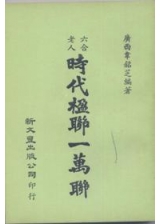 廣西韋銘芝編著
六合老人
時代楹聯一萬聯
新文豐出版公司印行